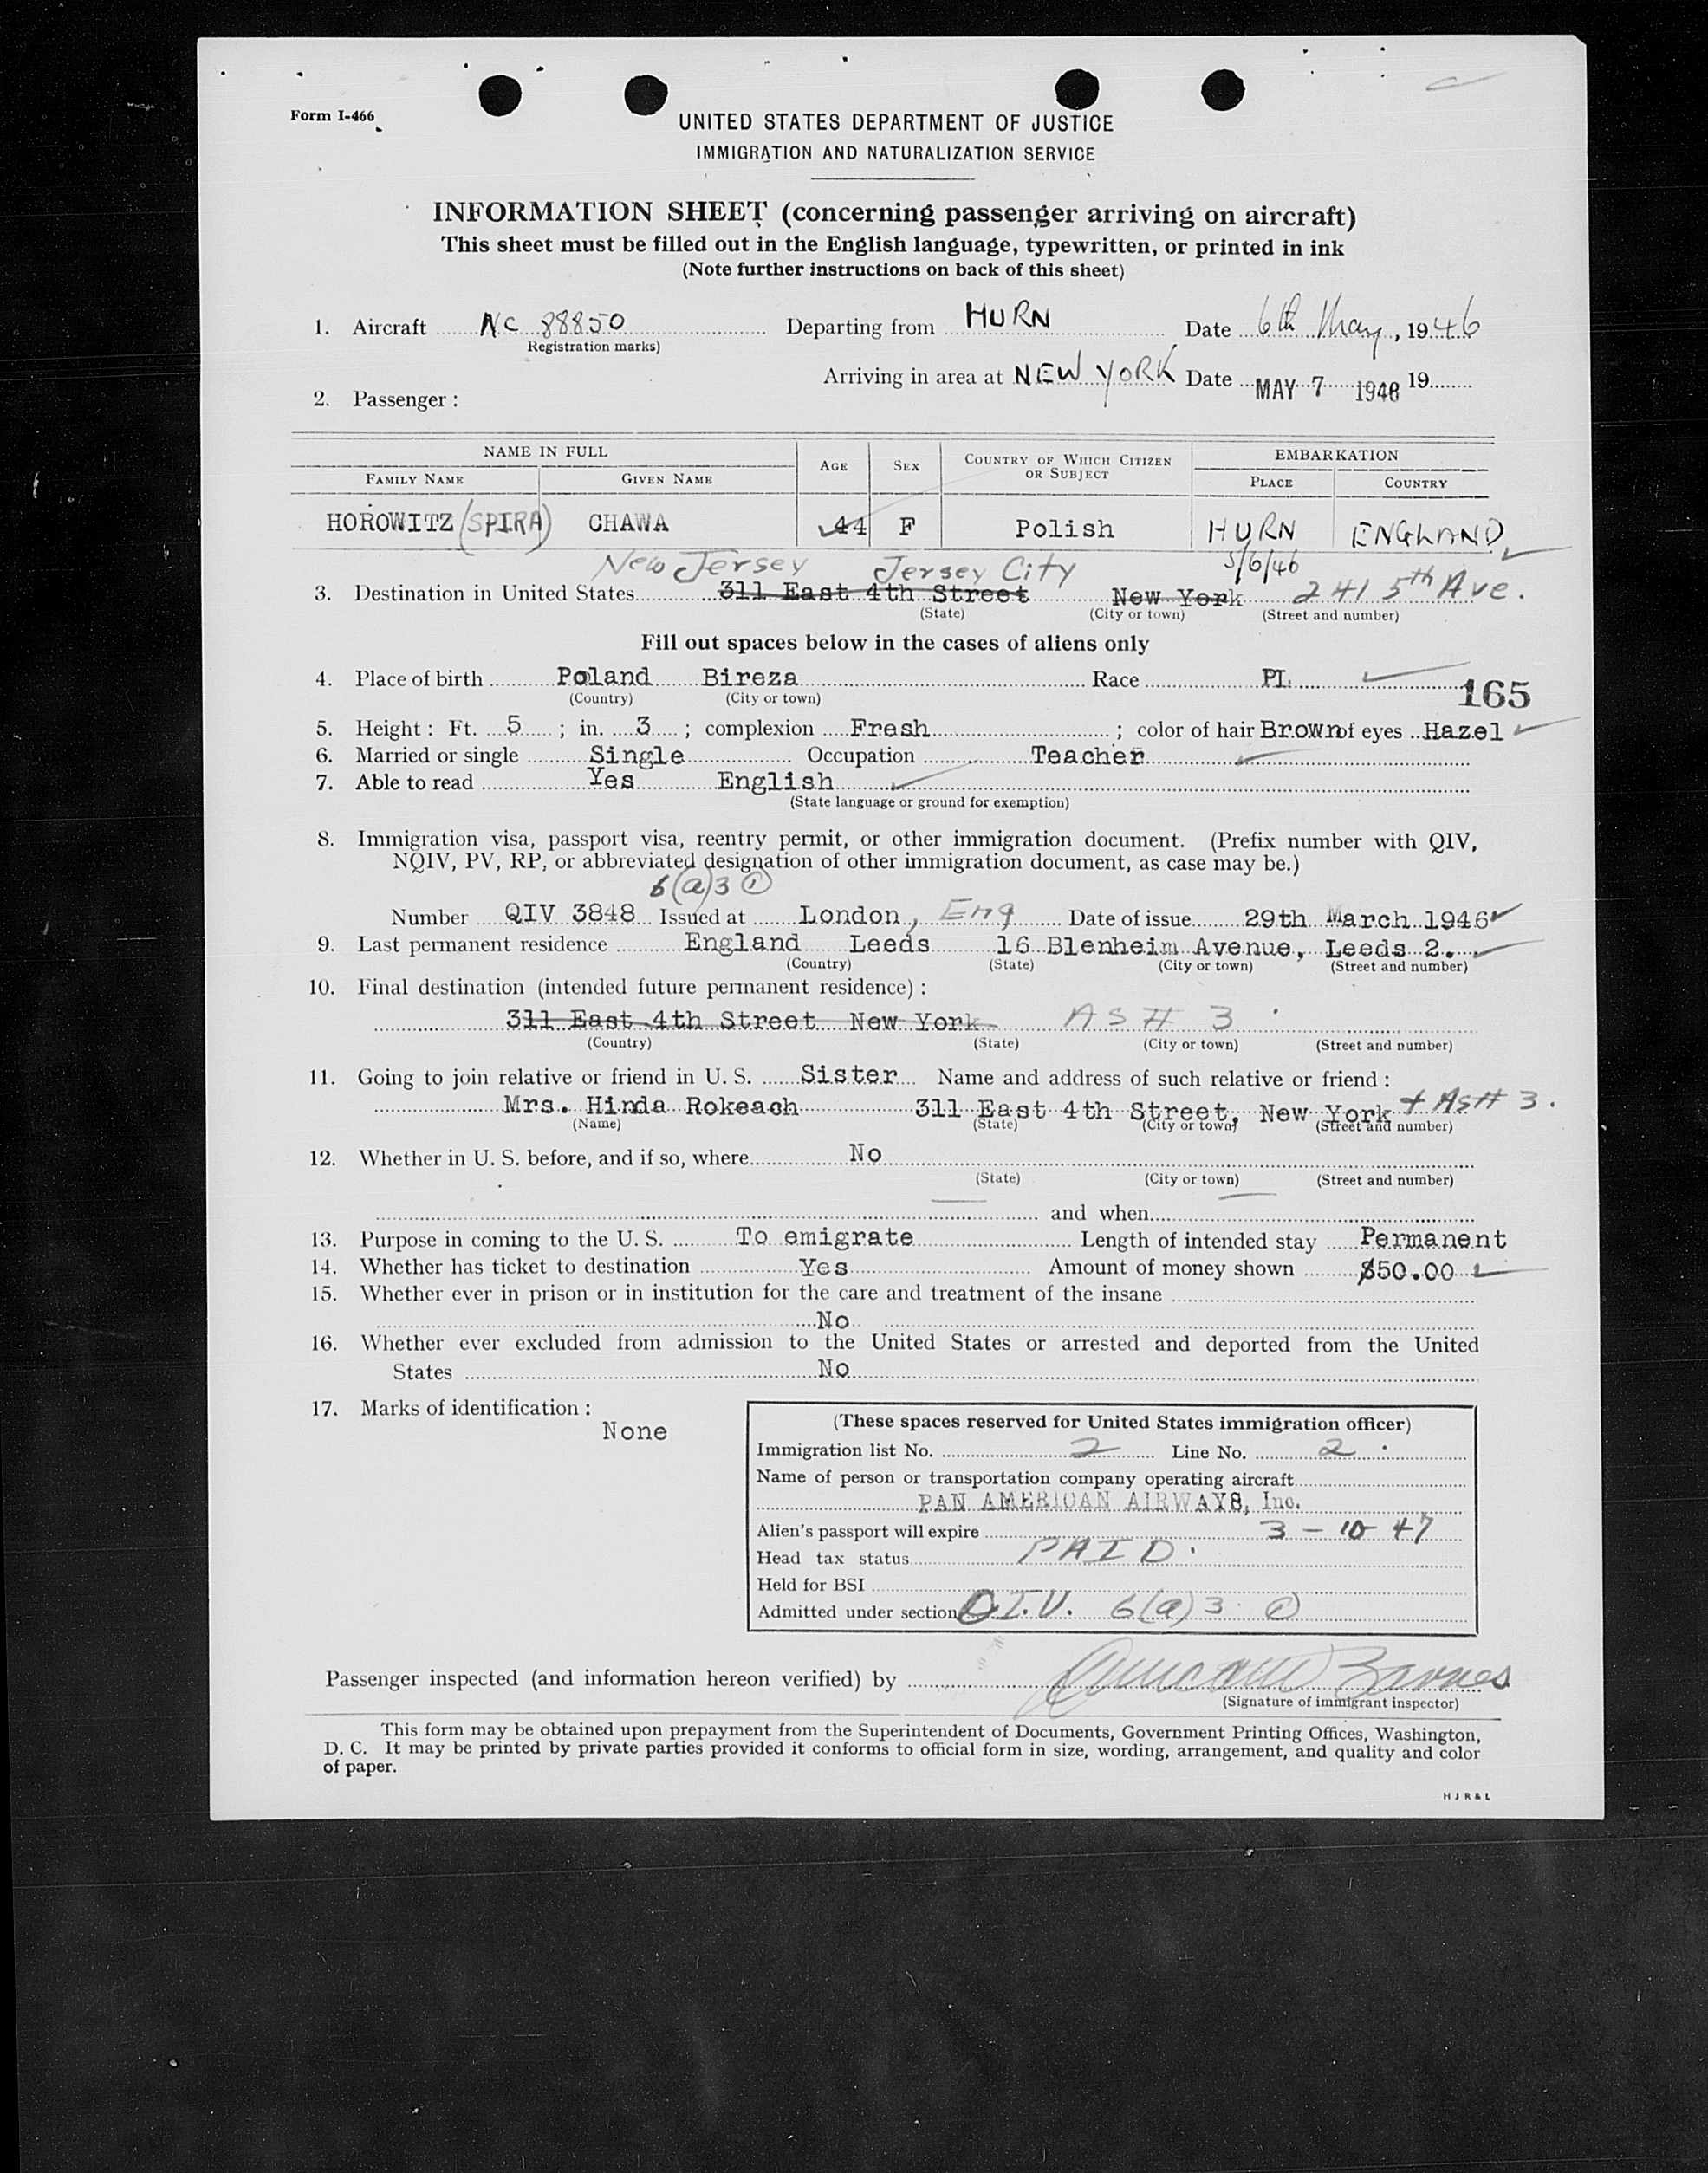 Form I-466
UNITED STATES DEPARTMENT OF JUSTICE
IMMIGRATION AND NATURALIZATION SERVICE
INFORMATION SHEET (concerning passenger arriving on aircraft)
This sheet must be filled out in the English language, typewritten, or printed in ink
(Note further instructions on back of this sheet)
1. Aircraft NC 88850 Departing from HURN Date 6th May, 1946
(Registration marks)
Arriving in area at NEW YORK Date MAY 7 1946 19
2. Passenger:
NAME IN FULL AGE SEX COUNTRY OF WHICH CITIZEN OR SUBJECT EMBARKATION
FAMILY NAME GIVEN NAME PLACE COUNTRY
HOROWITZ (SPIRA) CHAWA 44 F Polish HURN ENGLAND
New Jersey Jersey City 5/6/46
3. Destination in United States 311 East 4th Street New York 241 5th Ave.
(State) (City or town) (Street and number)
Fill out spaces below in the cases of aliens only
4. Place of birth Poland Bireza Race PL
(Country) (City or town)
165
5. Height: Ft. 5 ; in. 3 ; complexion Fresh ; color of hair Brown of eyes Hazel
6. Married or single Single Occupation Teacher
7. Able to read Yes English
(State language or ground for exemption)
8. Immigration visa, passport visa, reentry permit, or other immigration document. (Prefix number with QIV,
NQIV, PV, RP, or abbreviated designation of other immigration document, as case may be.)
6(a)3 ①
Number QIV 3848 Issued at London, Eng Date of issue 29th March 1946
9. Last permanent residence England Leeds 16 Blenheim Avenue, Leeds 2.
(Country) (State) (City or town) (Street and number)
10. Final destination (intended future permanent residence):
311 East 4th Street New York AS # 3
(Country) (State) (City or town) (Street and number)
11. Going to join relative or friend in U. S. Sister Name and address of such relative or friend:
Mrs. Hinda Rokeach 311 East 4th Street, New York + AS # 3.
(Name) (State) (City or town) (Street and number)
12. Whether in U. S. before, and if so, where No
(State) (City or town) (Street and number)
and when
13. Purpose in coming to the U. S. To emigrate Length of intended stay Permanent
14. Whether has ticket to destination Yes Amount of money shown $50.00
15. Whether ever in prison or in institution for the care and treatment of the insane
No
16. Whether ever excluded from admission to the United States or arrested and deported from the United
States No
17. Marks of identification:
None
(These spaces reserved for United States immigration officer)
Immigration list No. 2 Line No. 2
Name of person or transportation company operating aircraft
PAN AMERICAN AIRWAYS, Inc.
Alien's passport will expire 3 - 10 47
Head tax status PAID
Held for BSI
Admitted under section Q.I.V. 6(a)3 ①
Passenger inspected (and information hereon verified) by Barnes
(Signature of immigrant inspector)
This form may be obtained upon prepayment from the Superintendent of Documents, Government Printing Offices, Washington,
D. C. It may be printed by private parties provided it conforms to official form in size, wording, arrangement, and quality and color
of paper.
H J R & L